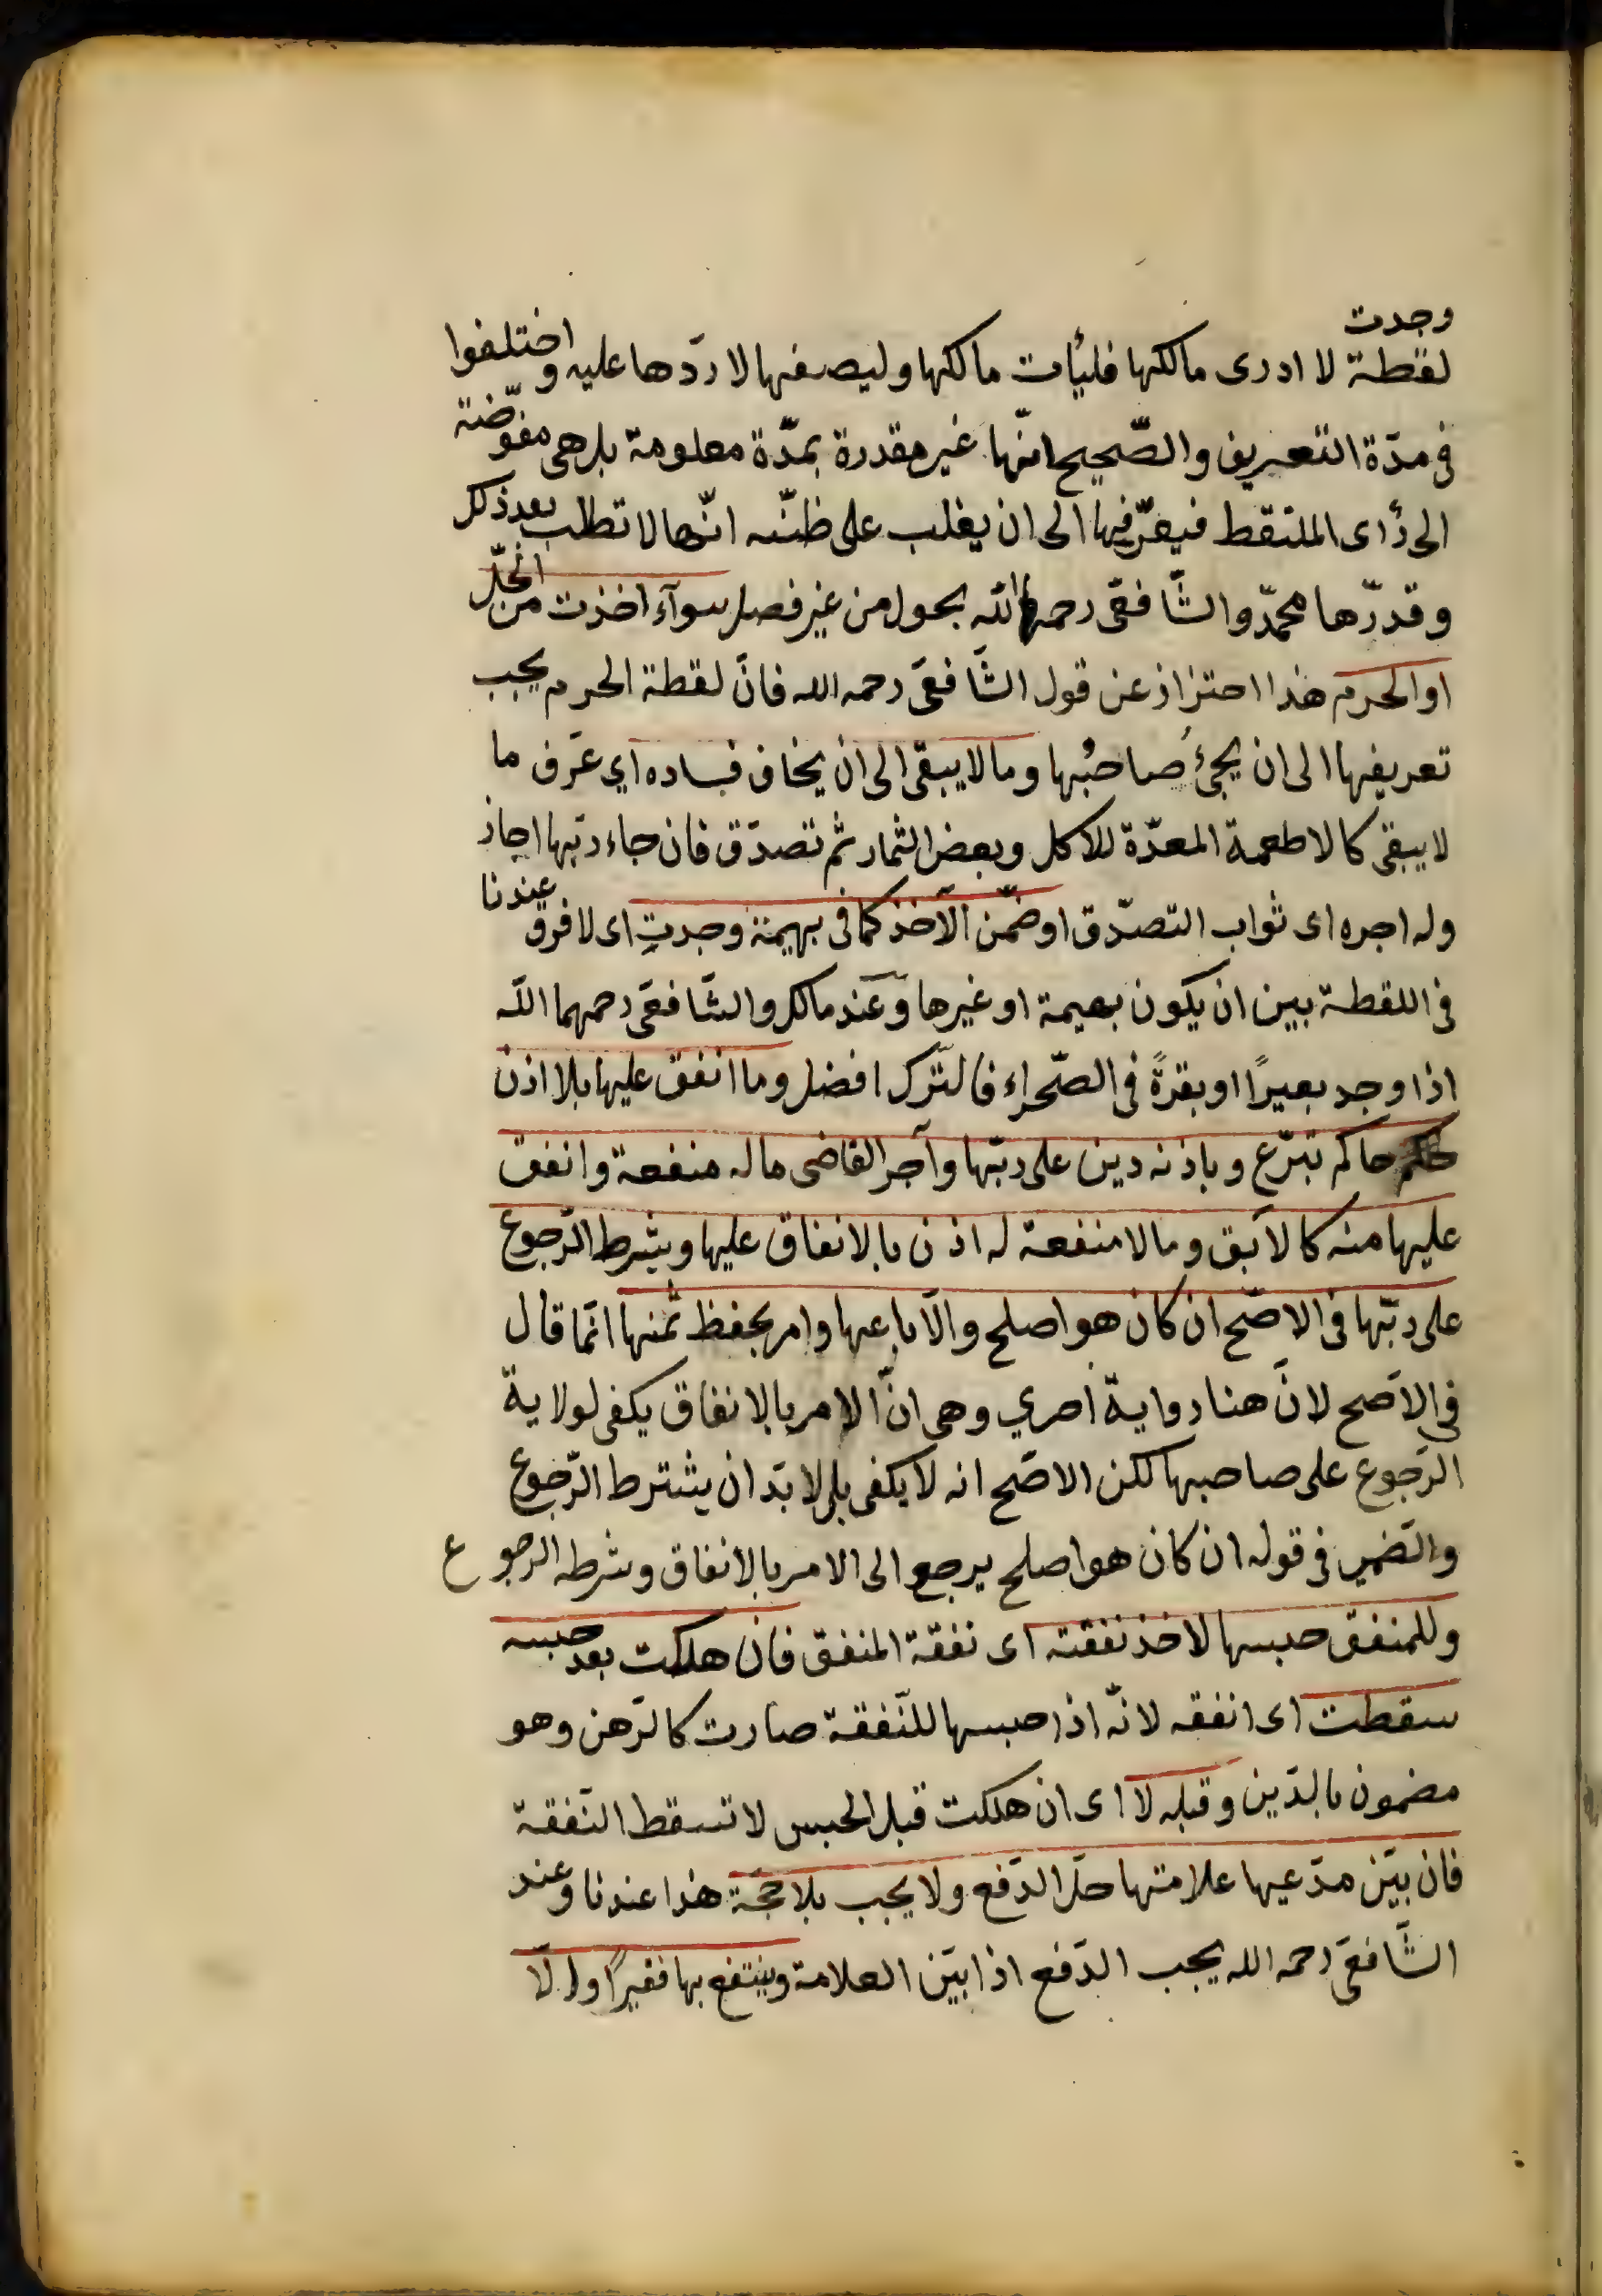 وجدت
لقطة لا ادرى مالكها فليأت مالكها وليصفها لا ردّها عليه واختلفوا
فى مدّة التعريف والصّحيح انّها غير مقدرة بمدّة معلومة بل هى مفوّضة
الى رأى الملتقط فيعرّفها الى ان يغلب على ظنّه انّها لا تطلب بعد ذلك
وقدرّها محمّد والشّافعىّ رحمهما الله بحول من غير فصل سوآء اخذت من الحلّ
او الحرم هذا احتراز عن قول الشّافعىّ رحمه الله فانّ لقطة الحرم يجب
تعريفها الى ان يجئ صاحبُها وما لا يبقى الى ان يخاف فساده اي عَرّف ما
لا يبقى كالاطعمة المعدّة للاكل وبعض الثمار ثم تصدّق فان جاء ربّها اجاز
وله اجره اى ثواب التصدّق او ضمّن الآخذ كما فى بهيمة وجدتِ اى لا فرق عندنا
فى اللقطة بين ان يكون بهيمة او غيرها وعند مالك والشّافعىّ رحمهما اللّه
اذا وجد بعيرًا او بقرةً فى الصّحراء فالترّك افضل وما انفق عليها بلا اذن
حاكم تبرّع وباذنه دين على ربّها وآجر القاضى ما له منفعة وانفق
عليها منه كالآبق وما لا منفعة له اذن بالانفاق عليها وبشرط الرّجوع
على ربّها فى الاصّح ان كان هو اصلح والّا باعها وامر بحفظ ثمنها انّما قال
فى الاصّح لانّ هنا رواية اخري وهى انّ الامر بالانفاق يكفى لولاية
الرّجوع على صاحبها لكن الاصّح انه لا يكفى بل لا بدّ ان يشترط الرّجوع
والضّمير فى قوله ان كان هو اصلح يرجع الى الامر بالانفاق وشرط الرجوع
وللمنفق حبسها لاخذ نفقته اى نفقة المنفق فان هلكت بعد حبسه
سقطت اى انفقه لانّه اذا حبسها للنّفقة صارت كالرّهن وهو
مضمون بالدّين وقبله لا اى ان هلكت قبل الحبس لا تسقط النّفقة
فان بيّن مدّعيها علامتها حلّ الدّفع ولا يجب بلا حجّة هذا عندنا وعند
الشّافعىّ رحمه الله يجب الدّفع اذا بيّن العلامة وينتفع بها فقيرًا والّا